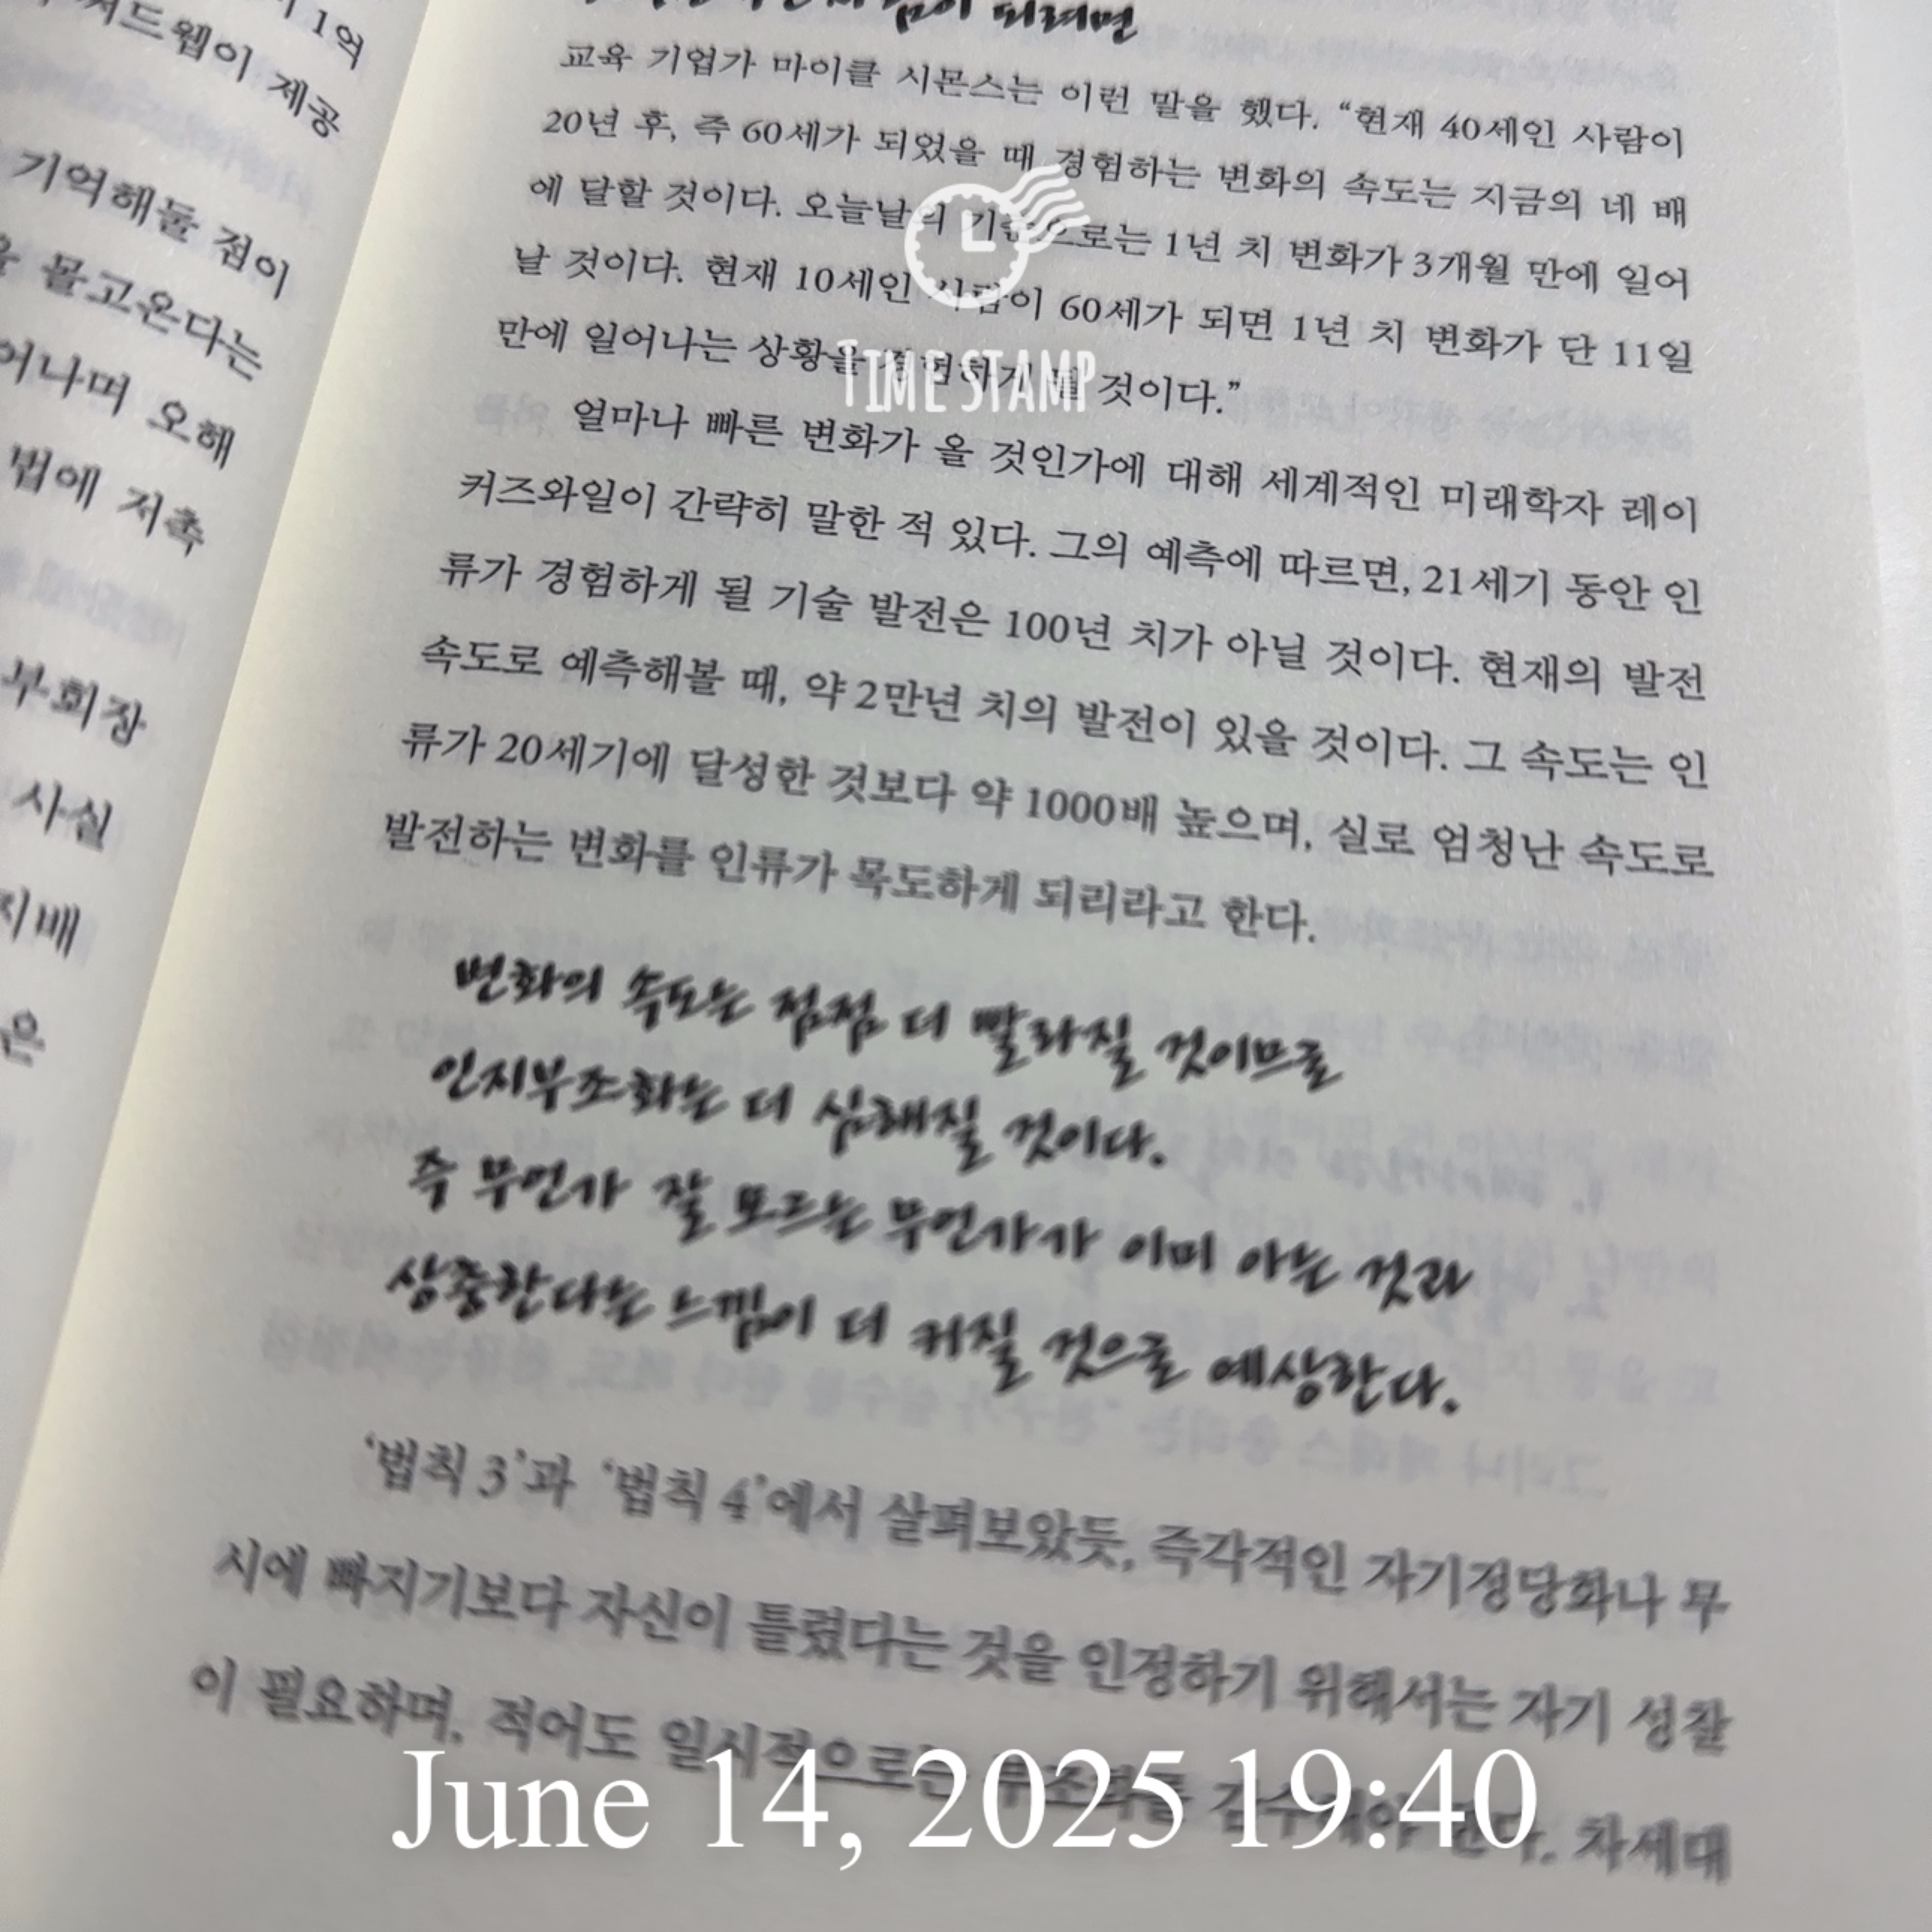 1억
저드웹이 제공
기억해둘 점이
몰고온다는
어나며 오해
법에 저촉
부회장
사실
지배
은
되려면
교육 기업가 마이클 시몬스는 이런 말을 했다. “현재 40세인 사람이
20년 후, 즉 60세가 되었을 때 경험하는 변화의 속도는 지금의 네 배
에 달할 것이다. 오늘날의 기준으로는 1년 치 변화가 3개월 만에 일어
날 것이다. 현재 10세인 사람이 60세가 되면 1년 치 변화가 단 11일
만에 일어나는 상황을 경험하게 될 것이다.”
TIME STAMP
얼마나 빠른 변화가 올 것인가에 대해 세계적인 미래학자 레이
커즈와일이 간략히 말한 적 있다. 그의 예측에 따르면, 21세기 동안 인
류가 경험하게 될 기술 발전은 100년 치가 아닐 것이다. 현재의 발전
속도로 예측해볼 때, 약 2만년 치의 발전이 있을 것이다. 그 속도는 인
류가 20세기에 달성한 것보다 약 1000배 높으며, 실로 엄청난 속도로
발전하는 변화를 인류가 목도하게 되리라고 한다.
변화의 속도는 점점 더 빨라질 것이므로
인지부조화는 더 심해질 것이다.
즉 무언가 잘 모르는 무언가가 이미 아는 것과
상충한다는 느낌이 더 커질 것으로 예상한다.
‘법칙 3’과 ‘법칙 4’에서 살펴보았듯, 즉각적인 자기정당화나 무
시에 빠지기보다 자신이 틀렸다는 것을 인정하기 위해서는 자기 성찰
이 필요하며, 적어도 일시적으로는 부조화를 감수해야 한다. 차세대
June 14, 2025 19:40